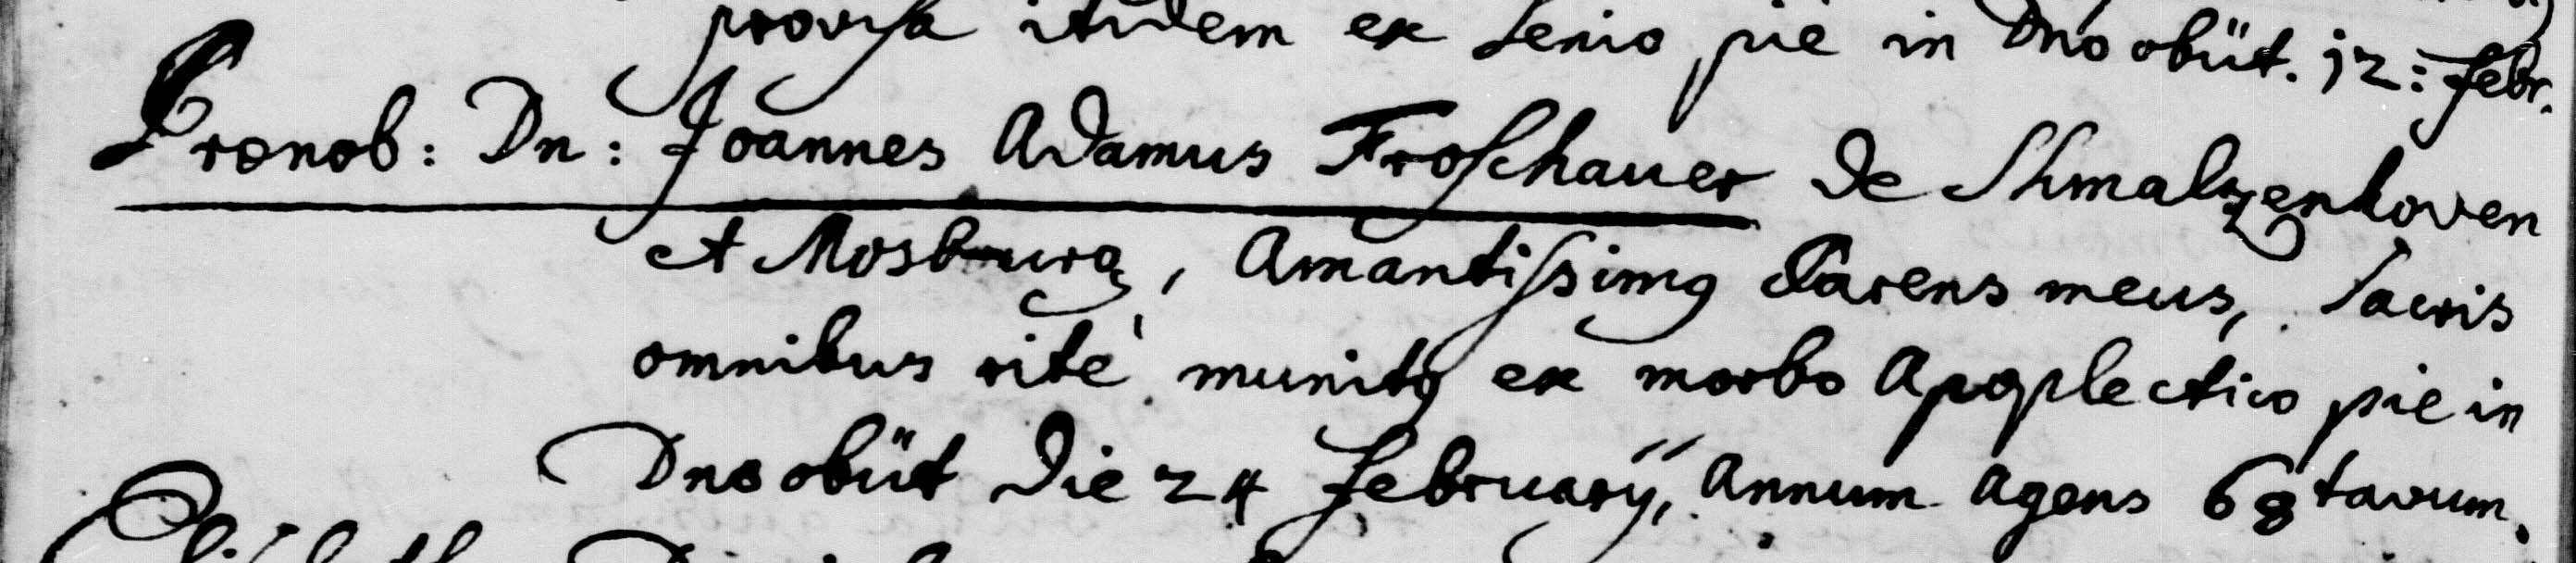 provisa itidem ex senio pie in Dno obiit. 12: febr.
Prænob: Dn: Joannes Adamus Froschauer de Shmalzenhoven
et Mosburg, Amantissimq Parens meus, sacris
omnibus ritè munitq ex morbo Apoplectico pie in
Dno obiit die 24 february, Annum agens 68tavum.